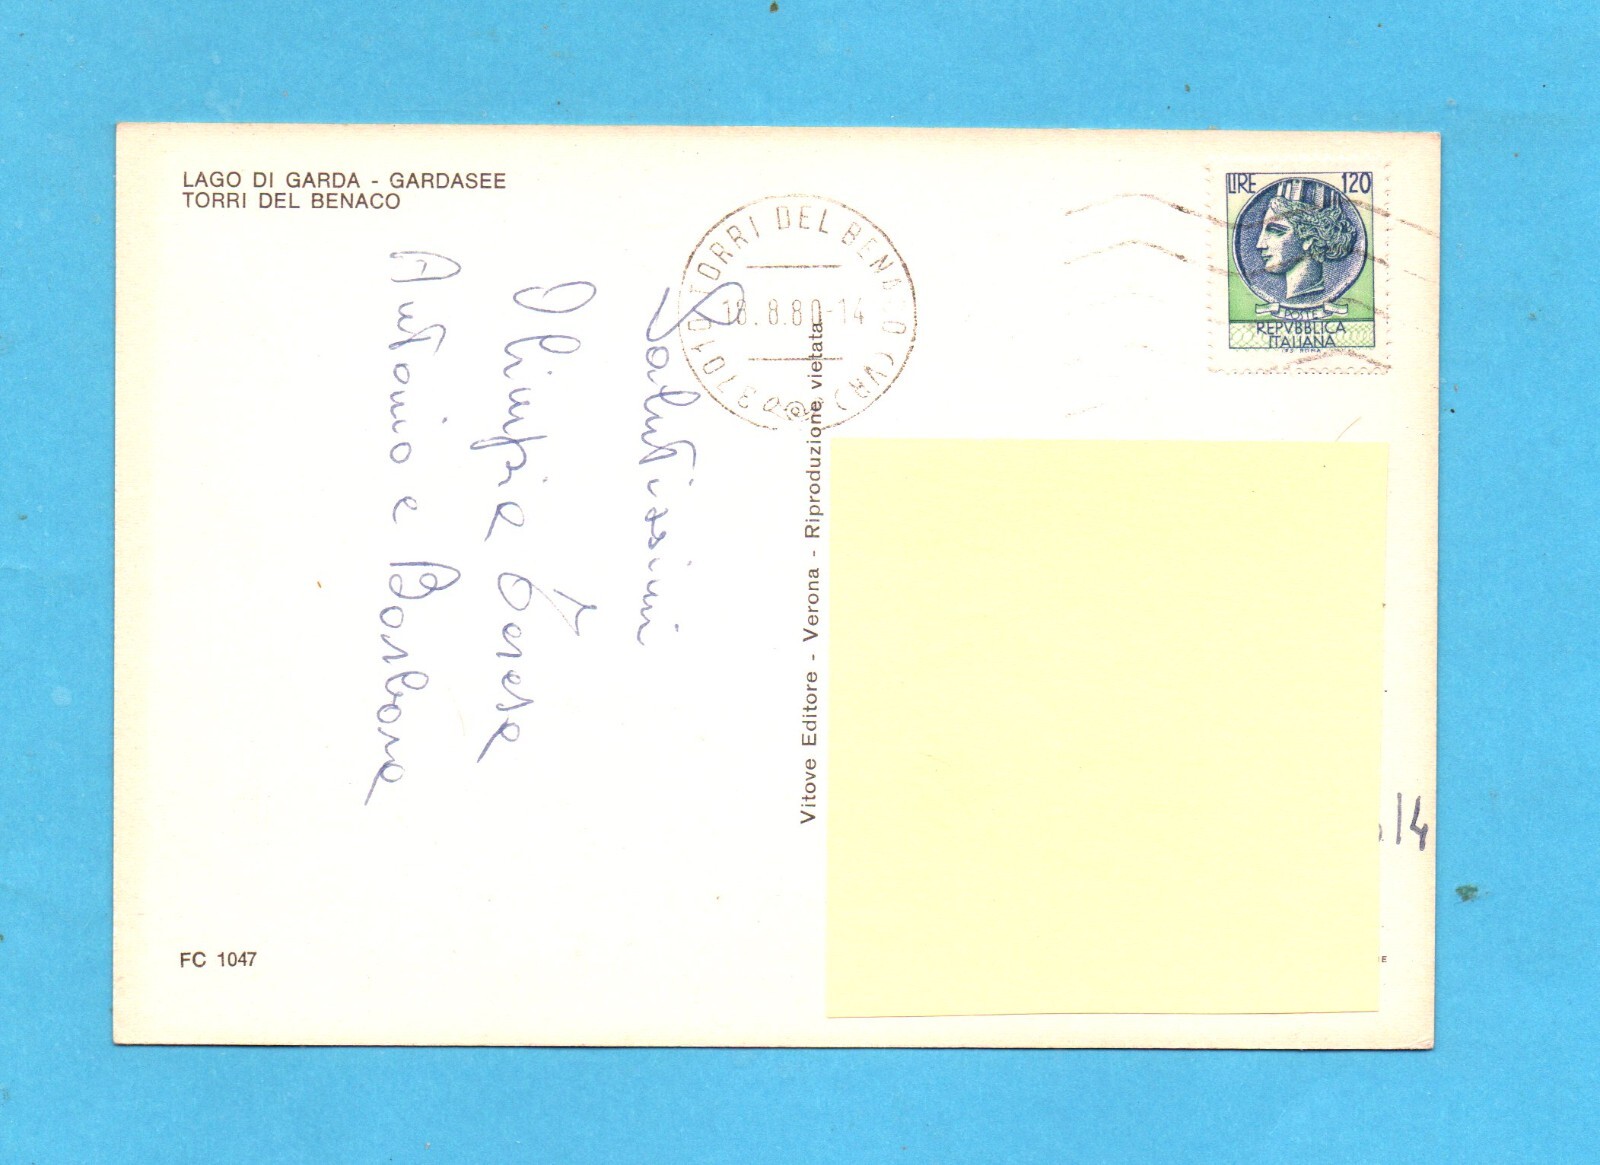 LAGO DI GARDA - GARDASEE
TORRI DEL BENACO
37010 TORRI DEL BENACO (VR)
18.8.80-14
LIRE 120
POSTE
REPVBBLICA
ITALIANA
Salutissimi
Olimpia Teresa
Antonio e Barbara
Vitove Editore - Verona - Riproduzione vietata
14
FC 1047